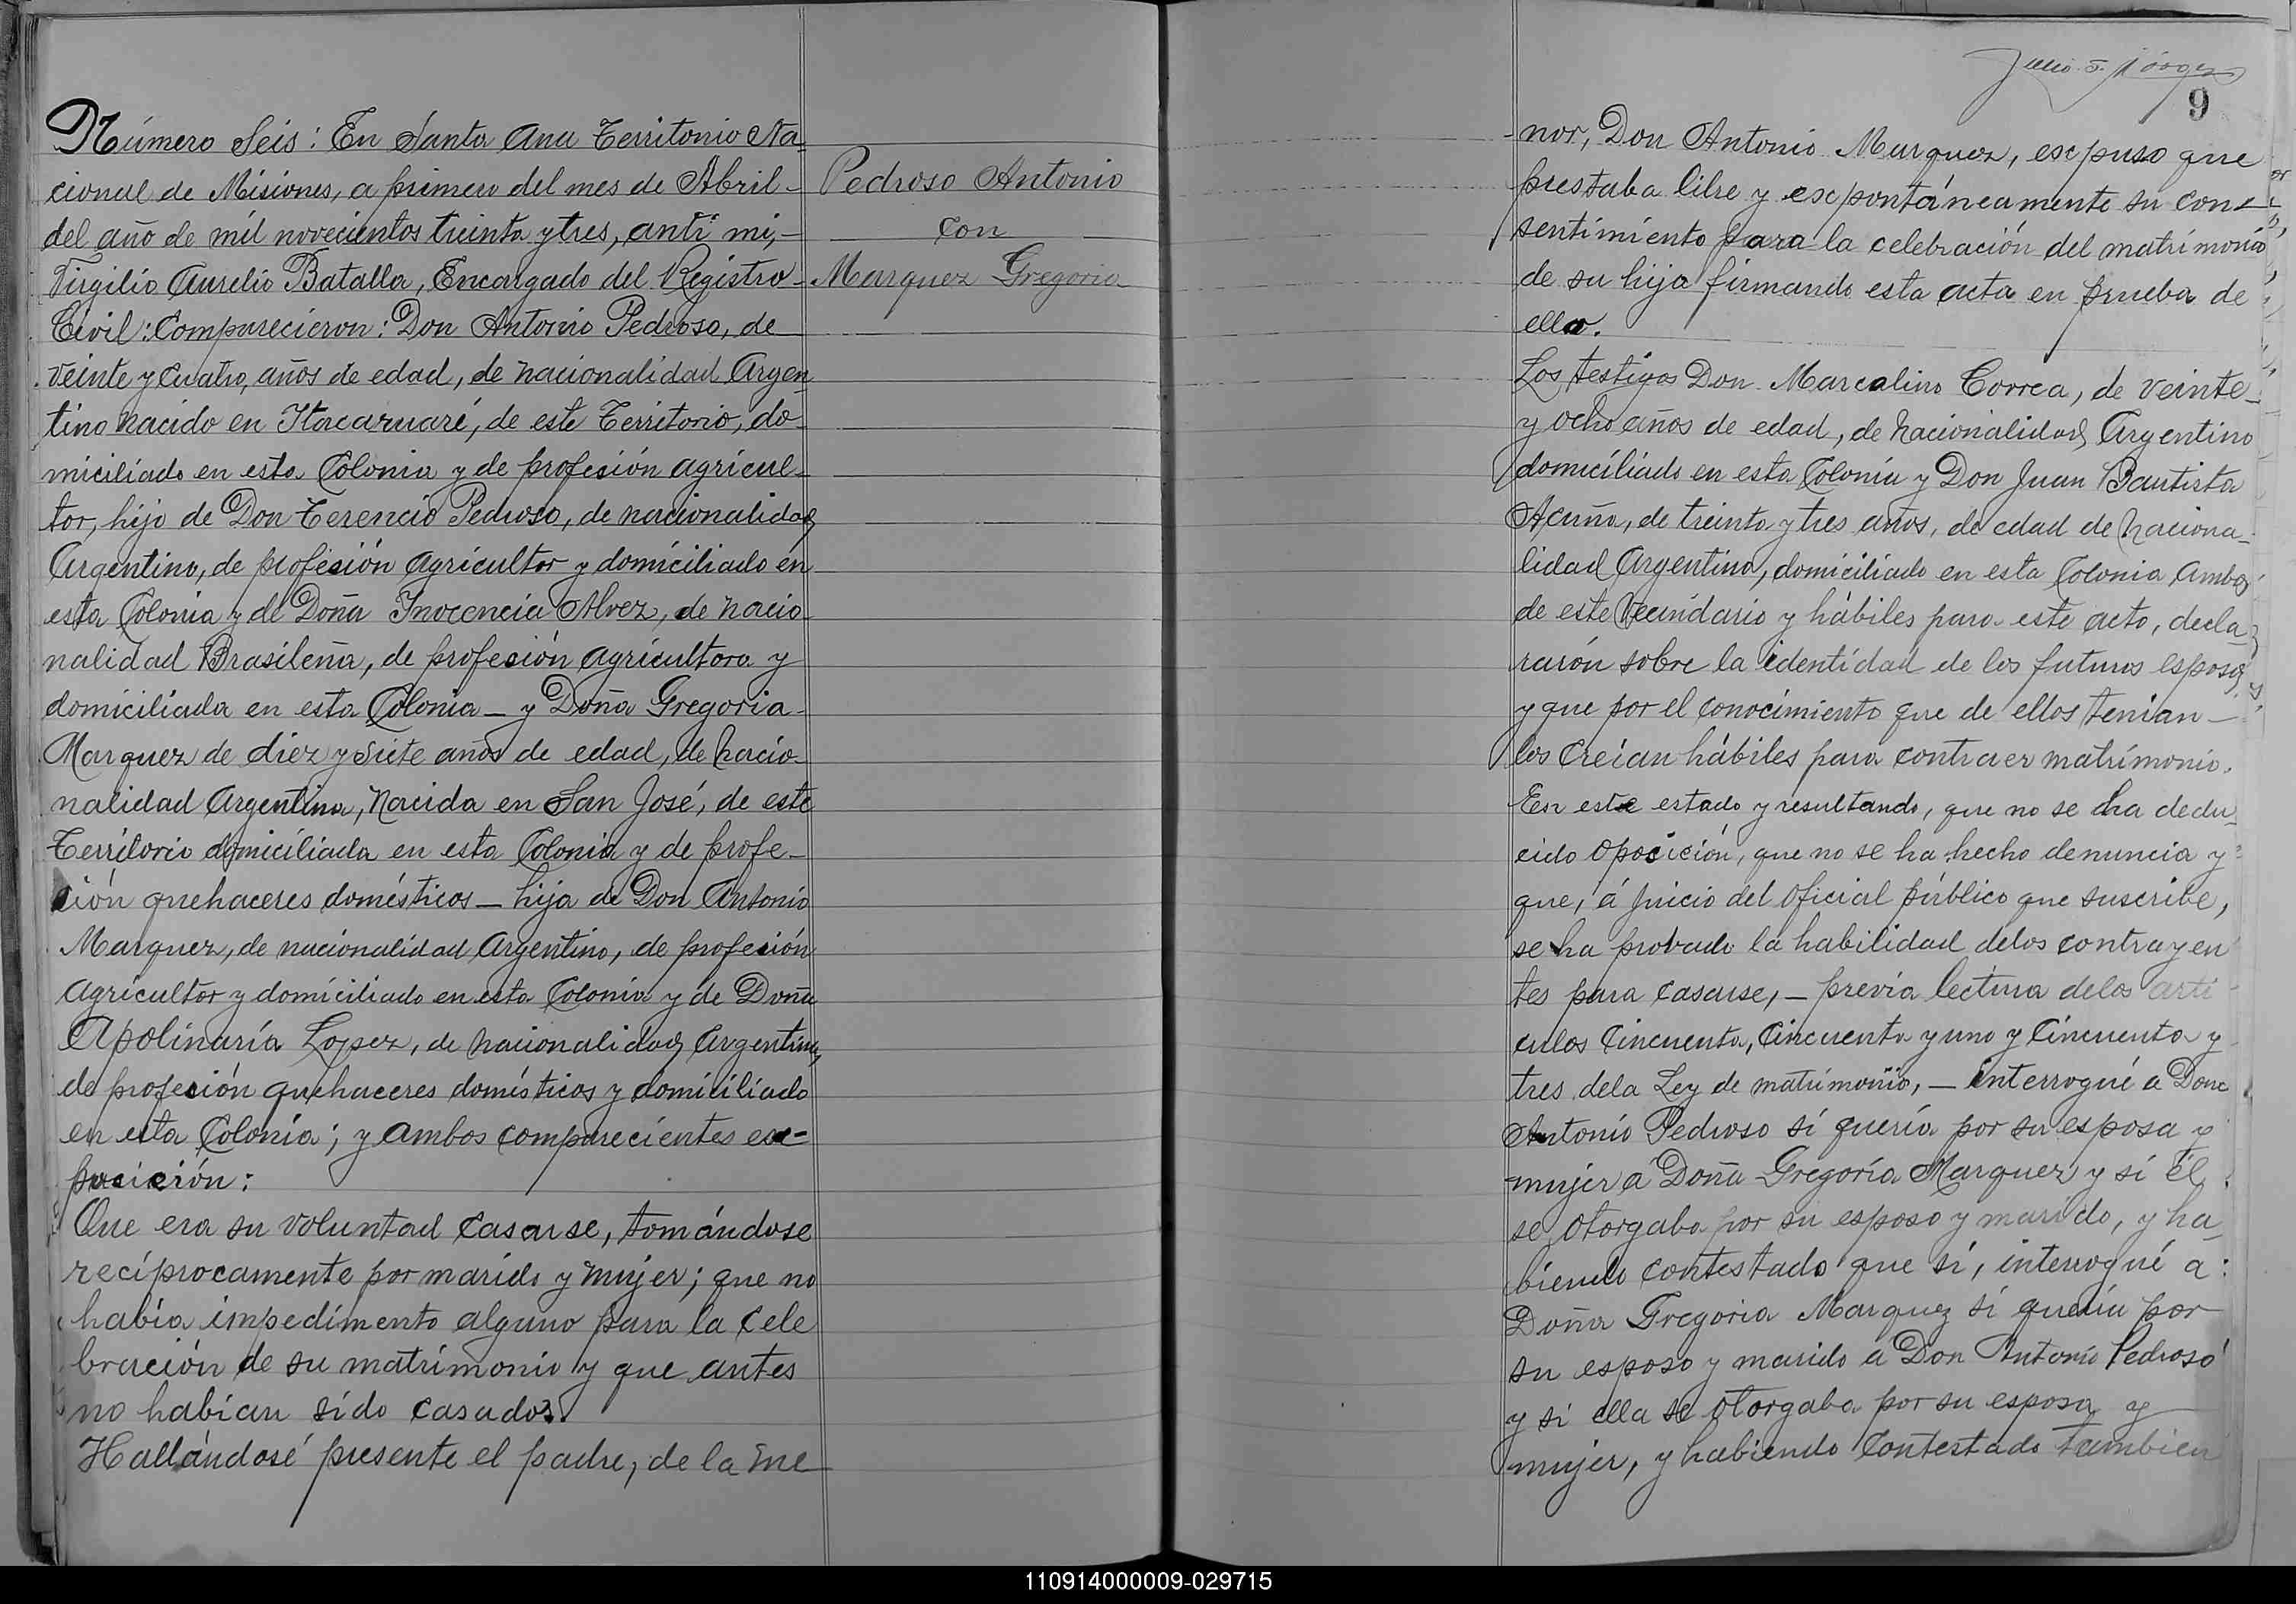 Número Seis: En Santa Ana Territorio Na-
cional de Misiones, a primero del mes de Abril-
del año de mil novecientos treinta y tres, anti mi,-
Virgilio Aurelio Batalla, Encargado del Registro-
Civil: Comparecieron: Don Antonio Pedroso, de
veinte y cuatro, años de edad, de nacionalidad Argen-
tino nacido en Itacaruaré, de este Territorio, do-
miciliado en esta Colonia y de profesión agricul-
tor, hijo de Don Terencio Pedroso, de nacionalidad
Argentino, de profesión agricultor y domiciliado en
esta Colonia y de Doña Inocencia Alvez, de nacio-
nalidad Brasileña, de profesión agricultora y
domiciliada en esta Colonia - y Doña Gregoria-
Marquez de diez y siete años de edad, de nacio-
nalidad Argentina, nacida en San José, de este
Territorio domiciliada en esta Colonia y de profe-
sión quehaceres domésticos - hija de Don Antonio
Marquez, de nacionalidad Argentino, de profesión
agricultor y domiciliado en esta Colonia y de Doña
Apolinaría Lopez, de nacionalidad Argentina,
de profesión quehaceres domésticos y domiciliado
en esta Colonia; y ambos comparecientes
Que era su voluntad casarse, tomándose
recíprocamente por marido y mujer; que no
había impedimento alguno para la cele
bración de su matrimonio y que antes
no habían sido casados.
Hallándosé presente el padre, de la me
Pedroso Antonio
con
Marquez Gregoria
9
nor, Don Antonio Marquez, escpuso que
prestaba libre y escpontáneamente su con-
sentimiento para la celebración del matrimonio
de su hija firmando esta acta en prueba de
ello.
Los testigos Don Marcelino Correa, de veinte-
y ocho años de edad, de nacionalidad Argentino
domiciliado en esta Colonia y Don Juan Bautista
Acuña, de treinta y tres años, de edad de naciona-
lidad Argentino, domiciliado en esta Colonia Ambos
de este Vecindario y hábiles para este acto, decla
rarón sobre la identidad de los futuros esposos,
y que por el conocimiento que de ellos tenian-
los creían hábiles para contraer matrimonio.
En este estado y resultando, que no se ha dedu-
cido oposición, que no se ha hecho denuncia y
que, á juicio del oficial público que suscribe,
se ha probado la habilidad delos contrayen
tes para casarse, - previa lectura delos arti-
culos Cincuenta, Cincuenta y uno y Cincuenta y
tres dela Ley de matrimonio, - interrogué a Don
Antonio Pedroso si quería por su esposa y
mujer á Doña Gregoria Marquez y si él
se otorgaba por su esposo y marido, y ha-
biendo contestado que si, interrogué a:
Doña Gregoria Marquez si quería por
su esposo y marido á Don Antonio Pedroso
y si ella se otorgaba por su esposa y
mujer, y habiendo Contestado tambien
110914000009-029715